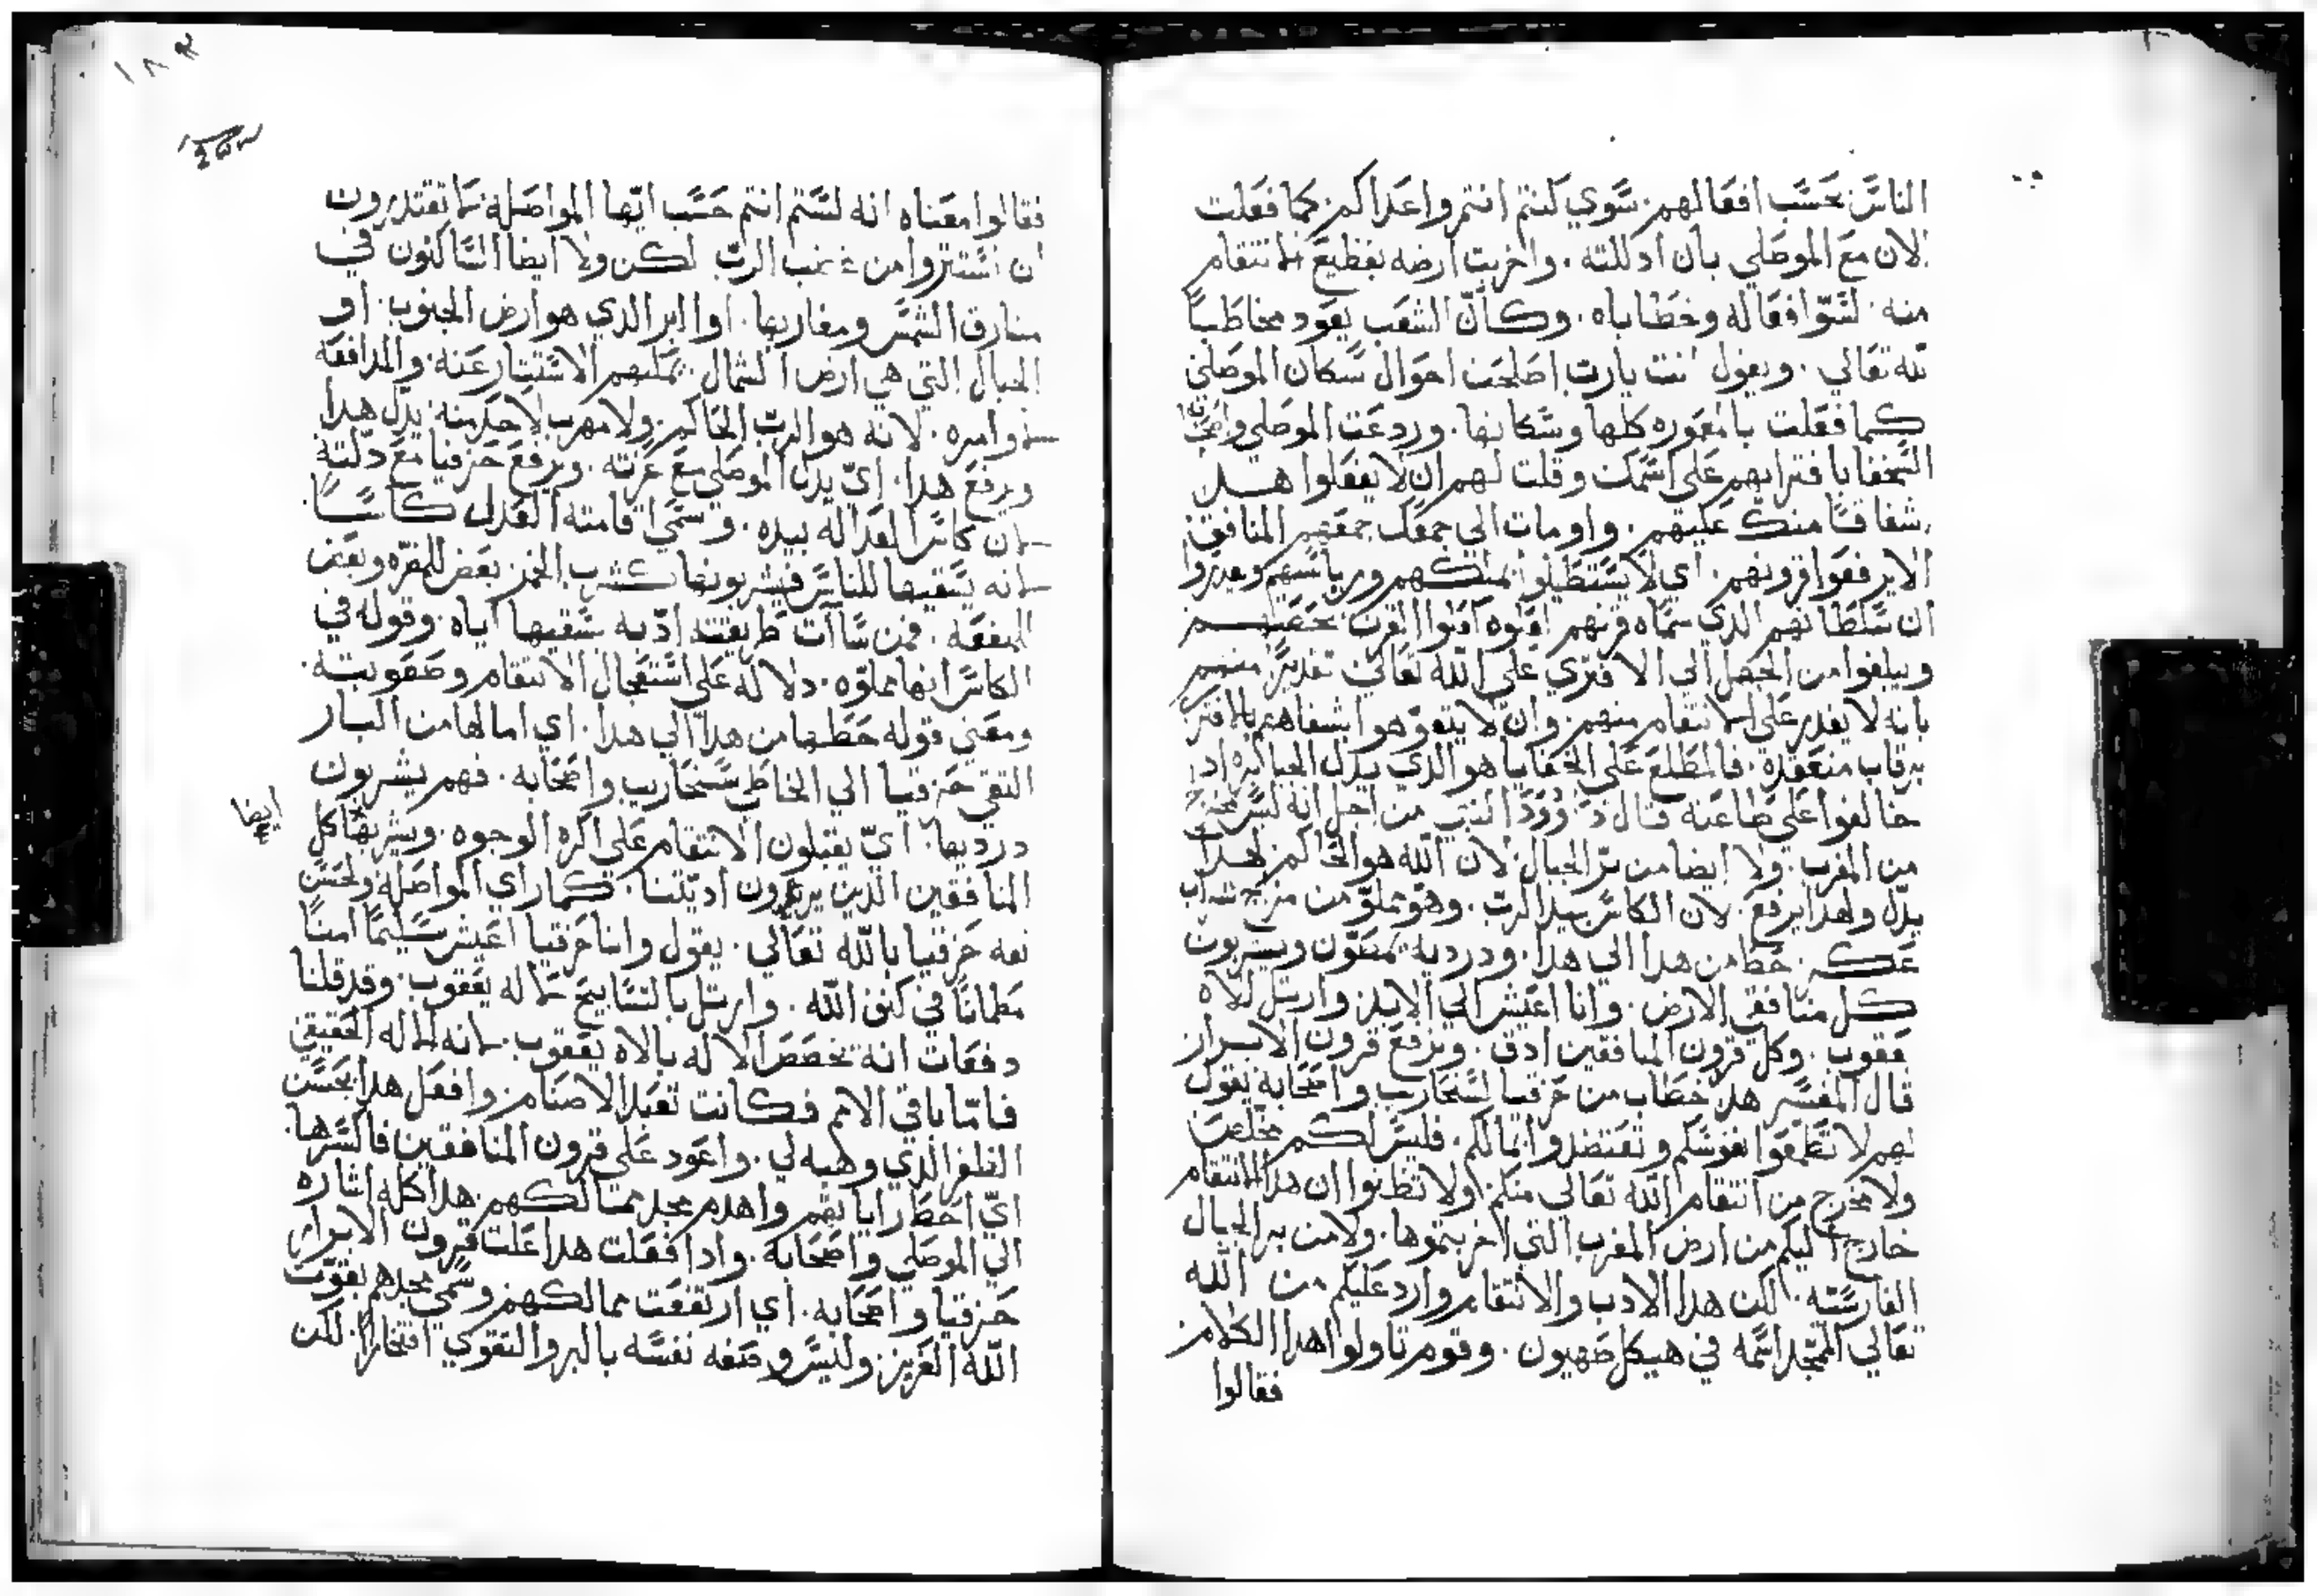 الناس بحسب افعالهم. سوي كنتم انتم واعداكم. كما فعلت
الان مع الموصلي بان ادللته. واخربت ارضه بفظيع الانتقام
منه. لسو افعاله وخطاياه. وكان الشعب يعود مخاطباً
لله تعالي. ويقول انت يارب اصلحت احوال سكان الموصلي
كما فعلت بالمعوره كلها وسكانها. وردعت الموصلي واصحاب
السخفا بافترايهم علي اسمك وقلت لهم ان لا يفعلوا هدا
شفاقاً منك عليهم. واومات الي جمعك جمعهم المنافق
الا يرفعوا قرونهم. اي لا يستطيلوا بملكهم ورياستهم
ان سلطانهم الذي سماه قرنهم
ويبلغوا من الجهل الي الافتري علي الله تعالي
بانه لا يقدر علي الانتقام منهم. وان لا يتفوهوا بشفاههم
برقاب منعقده. فالمطلع علي الخفايا هو الذي يدل الجبابره اد
خالفوا علي طاعته قال داوود النبي من اجل انه ليس مخرج
من المغرب. ولا ايضا من بر الجبال لان الله هو الحاكم لهدا
يدل ولهدا يرفع. لان الكاس بيد الرب. وهو مملو من مزيج شراب
عكر. حطه من هدا الي هدا. ودرديه يمصون ويشربون
كل منافقي الارض. وانا اعيش الي الابد وارتل لالاه
يعقوب. وكل قرون المنافقين ادق. وترفع قرون الابرار
قال المفسر هدا خطاب من حزقيا لسنحاريب واصحابه يقول
لهم لا تطمعوا نفوسكم وتعتضدوا بمالكم. فليس لكم مخلص
ولا مخرج من انتقام الله تعالي منكم. ولا تظنوا ان هدا الانتقام
خارج اليكم من ارض المغرب التي اخربتموها. ولا من بر الجبال
الفارسيه. لكن هدا الادب والانتقام وارد عليكم من الله
تعالي الممجد اسمه في هيكل صهيون. وقوم تاولوا هدا الكلام
فقالوا
فقالوا معناه انه لستم انتم حسب ايها المواصله ما تقتدرون
ان تستتروا من غضب الرب لكن ولا ايضا الساكنون في
مشارق الشمس ومغاربها. او البر الذي هو ارض الجنوب. او
الجبال التي هي ارض الشمال. يمكنهم الاستتار عنه. والمدافعه
اوامره. لانه هو الرب الحاكم. ولا مهرب لاحد منه. يدل هدا
ويرفع هدا. اي يدل الموصلي مع عزته. ويرفع حزقيا مع دلته
لان كاس العداله بيده. وسمي اقامته العدل كاساً.
لانه يسقيها للناس فيشربونها كشرب الخمر بعض للمضره وبعض
للمنفعه. فمن سات طريقته ادبه بسقيها اياه. وقوله في
الكاس انها مملوه. دلاله علي استعجال الانتقام وصعوبته.
ومعني قوله حطها من هدا الي هدا. اي امالها من البار
التقي حزقيا الي الخاطي سنحاريب واصحابه. فهم يشربون
درديها. اي يقبلون الانتقام علي اكره الوجوه. ويشربها كل
ايضا
المنافقين الذين يريدون اديتنا. كما راي المواصله ولحسن
ثقه حزقيا بالله تعالي. يقول وانا حزقيا اعيش سليماً امناً
مطمانا في كنف الله. وارتل بالتسابيح لاله يعقوب. وقد قلنا
دفعات انه تخصص الاله بالاه يعقوب. لانه الاله الحقيقي
فاما باقي الامم فكانت تعبد الاصنام وافعل هدا بحسن
الظفر الذي وهبه لي. واعود علي قرون المنافقين فاكسرها.
اي احط راياتهم واهدم مجد ممالكهم. هدا كله اشاره
الي الموصلي واصحابه. وادا فعلت هدا علت قرون الابرار
حزقيا واصحابه. اي ارتفعت ممالكهم وسمي مجدهم بقوة
الله العزيز وليس وصفه نفسه بالبر والتقوي افتخاراً. لكن